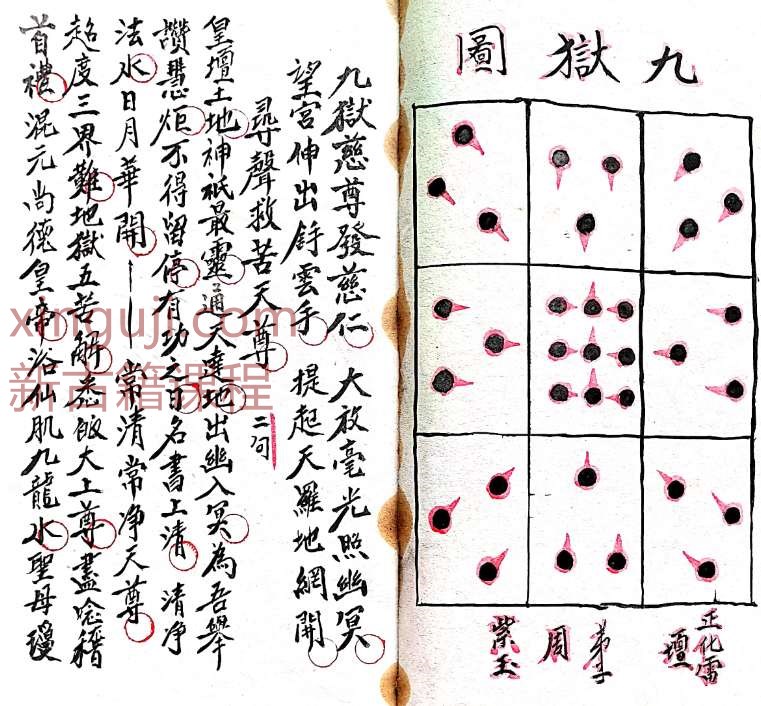 九獄圖
正化雷壇
弟子
周紫玉
九獄慈尊發慈仁 大放毫光照幽冥
望宮伸出雲手 提起天羅地網開
尋聲救苦天尊 二句
皇壇土地神祇最靈通天達地出幽入冥為吾舉
讚慧炬不得留停有功之日名書上清 清净
法水日月華開——常清常净天尊
超度三界難地獄五苦解悉皈大上尊盡念稽
首禮混元尚德皇帝浴仙肌九龍水聖母瓊
xinguji.com
新古籍课程